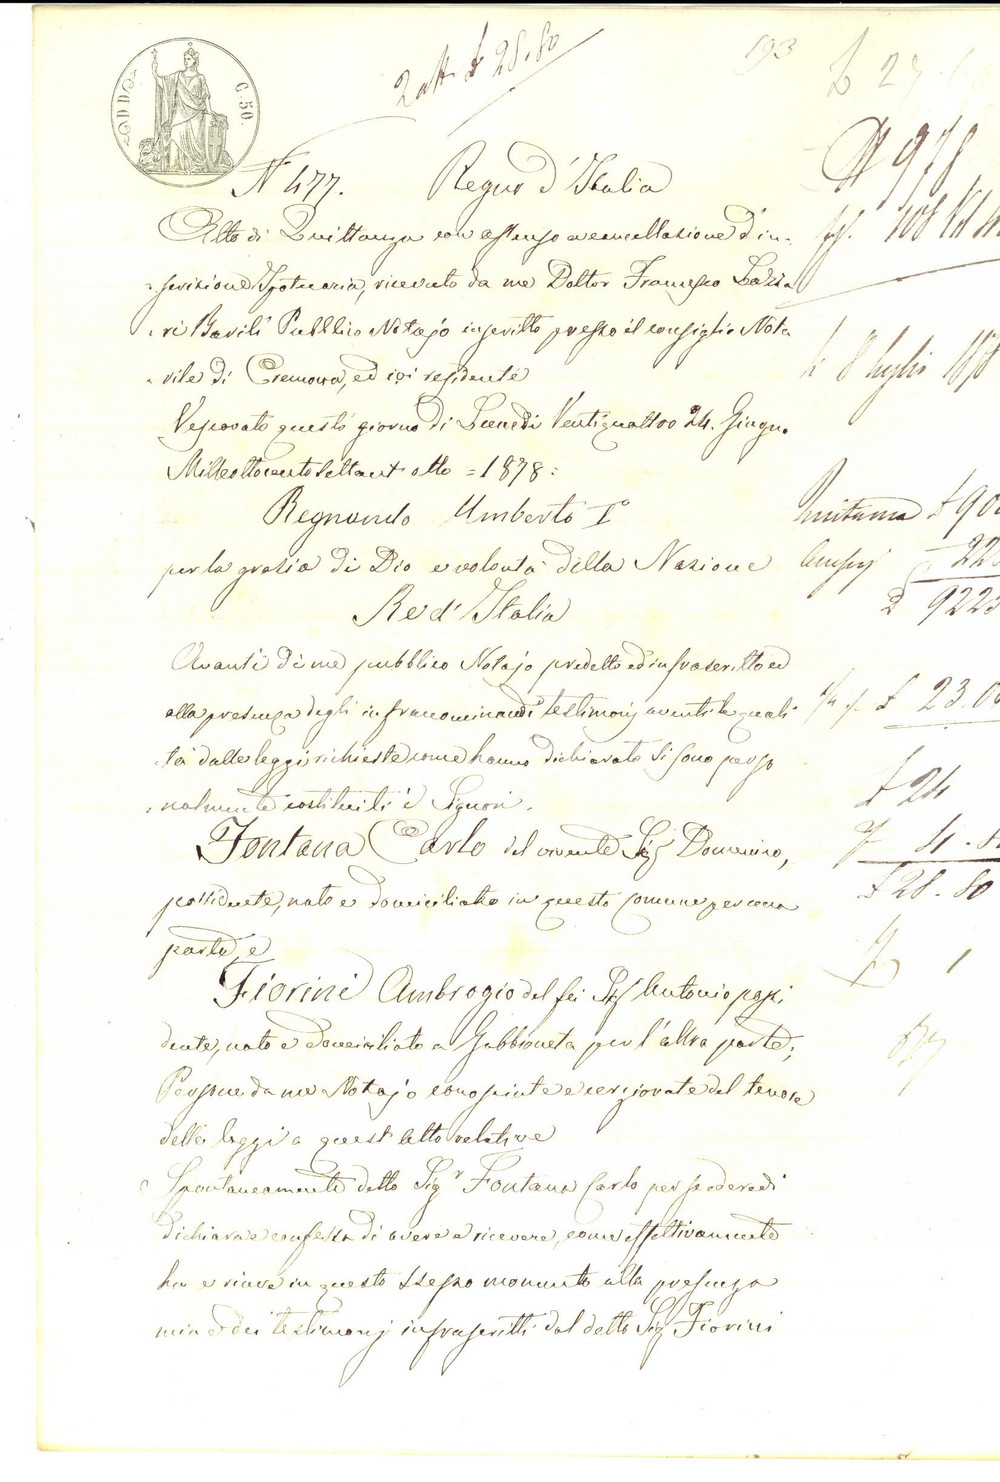 C. 50.
£ 28.80
193
£ 27
N 978
N° 477. Regno d'Italia
Atto di Quittanza con assenso a cancellazione d'in-
scrizione Ipotecaria, ricevuto da me Dottor Francesco Lazza
ri Barili Pubblico Notajo inscritto presso il consiglio Nota
rile di Cremona, ed ivi residente
li 8 luglio 1878
Vescovato questo giorno di Lunedi Ventiquattro 24. Giugno
Milleottocentosettant'otto = 1878 =
Regnando Umberto I°
Quittanza £ 900
per la grazia di Dio e volontà della Nazione
£ 922
Re d'Italia
Avanti di me pubblico Notajo predetto ed infrascritto ed
alla presenza degli infranominandi testimonj aventi le quali
£ 23.00
tà dalle leggi richieste come hanno dichiarato si sono perso
nalmente costituiti i Signori.
£ 24
Fontana Carlo del vivente Sig.r Domenico,
£ 28.80
possidente, nato e domiciliato in questo comune per una
parte, e
1
Fiorini Ambrogio del fu Sig.r Antonio possi
dente, nato e domiciliato a Gabbioneta per l'altra parte;
Persone da me Notajo conosciute e cerziorate del tenore
delle leggi a quest'atto relative
Spontaneamente detto Sig.r Fontana Carlo per se ed eredi
dichiara e confessa di avere e ricevere, come effettivamente
ha e riceve in questo stesso momento alla presenza
mia e dei testimonj infrascritti dal detto Sig.r Fiorini